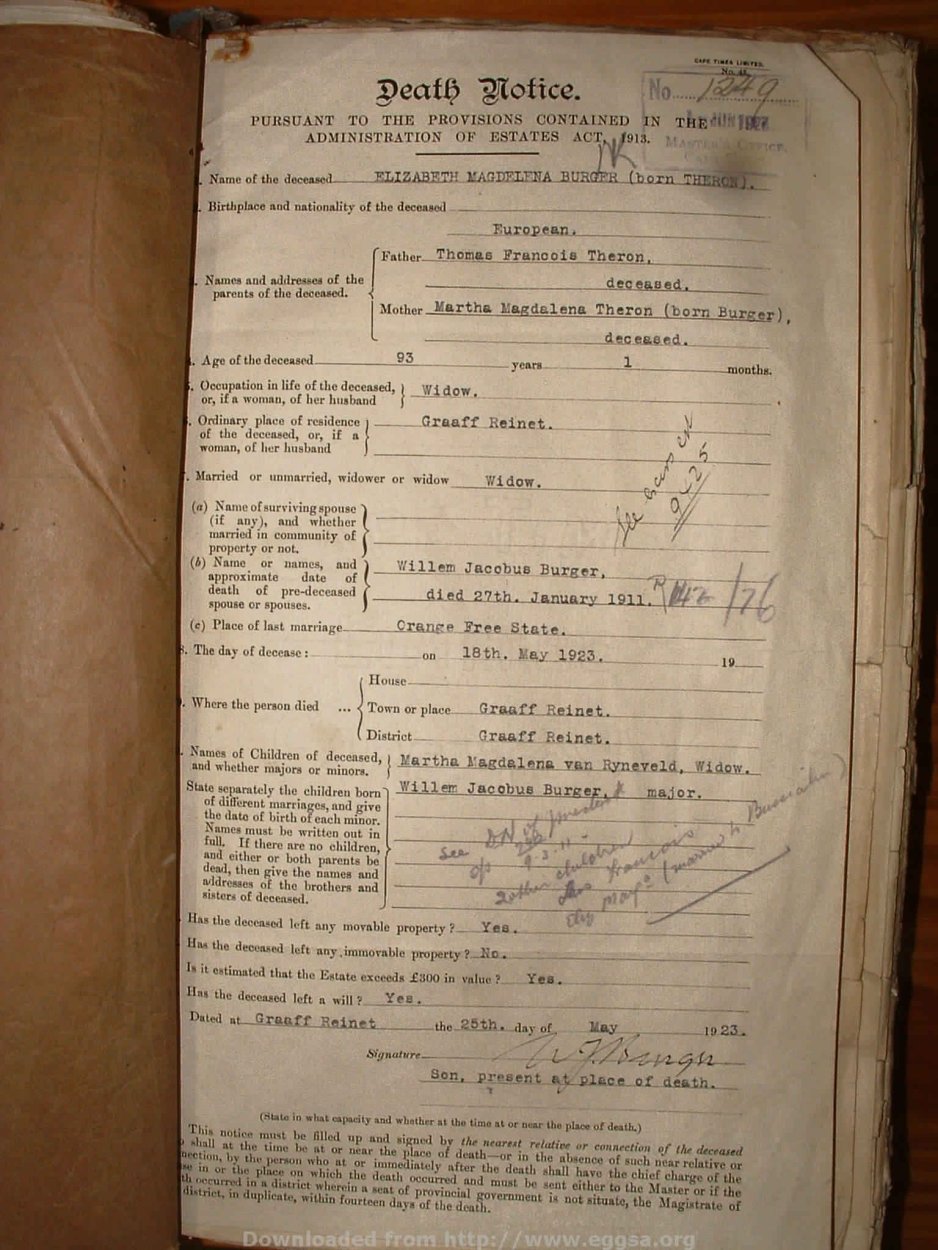 CAPE TIMES LIMITED.
No. 48.
Death Notice.
No. 1249
PURSUANT TO THE PROVISIONS CONTAINED IN THE
ADMINISTRATION OF ESTATES ACT, 1913.
MASTER'S OFFICE,
Name of the deceased ELIZABETH MAGDELENA BURGER (born THERON).
Birthplace and nationality of the deceased
European.
Names and addresses of the parents of the deceased.
Father Thomas Francois Theron,
deceased.
Mother Martha Magdalena Theron (born Burger),
deceased.
Age of the deceased 93 years 1 months.
Occupation in life of the deceased, or, if a woman, of her husband
Widow.
Ordinary place of residence
of the deceased, or, if a
woman, of her husband
Graaff Reinet.
Married or unmarried, widower or widow Widow.
(a) Name of surviving spouse
(if any), and whether
married in community of
property or not.
See
(b) Name or names, and
approximate date of
death of pre-deceased
spouse or spouses.
Willem Jacobus Burger,
died 27th. January 1911.
/26
(c) Place of last marriage Orange Free State.
8. The day of decease: on 18th. May 1923. 19
Where the person died ...
House
Town or place Graaff Reinet.
District Graaff Reinet.
Names of Children of deceased,
and whether majors or minors.
Martha Magdalena van Ryneveld, Widow.
State separately the children born
of different marriages, and give
the date of birth of each minor.
Names must be written out in
full. If there are no children,
and either or both parents be
dead, then give the names and
addresses of the brothers and
sisters of deceased.
Willem Jacobus Burger, major.
See DN of
9-3-11
2 other children
Francois
Has the deceased left any movable property? Yes.
Has the deceased left any immovable property? No.
Is it estimated that the Estate exceeds £300 in value? Yes.
Has the deceased left a will? Yes.
Dated at Graaff Reinet the 25th. day of May 1923.
Signature WJBurger
Son, present at place of death.
(State in what capacity and whether at the time at or near the place of death.)
This notice must be filled up and signed by the nearest relative or connection of the deceased
shall at the time be at or near the place of death—or in the absence of such near relative or
nection, by the person who at or immediately after the death shall have the chief charge of the
se in or the place on which the death occurred and must be sent either to the Master or if the
th occurred in a district wherein a seat of provincial government is not situate, the Magistrate of
district, in duplicate, within fourteen days of the death.
Downloaded from http://www.eggsa.org